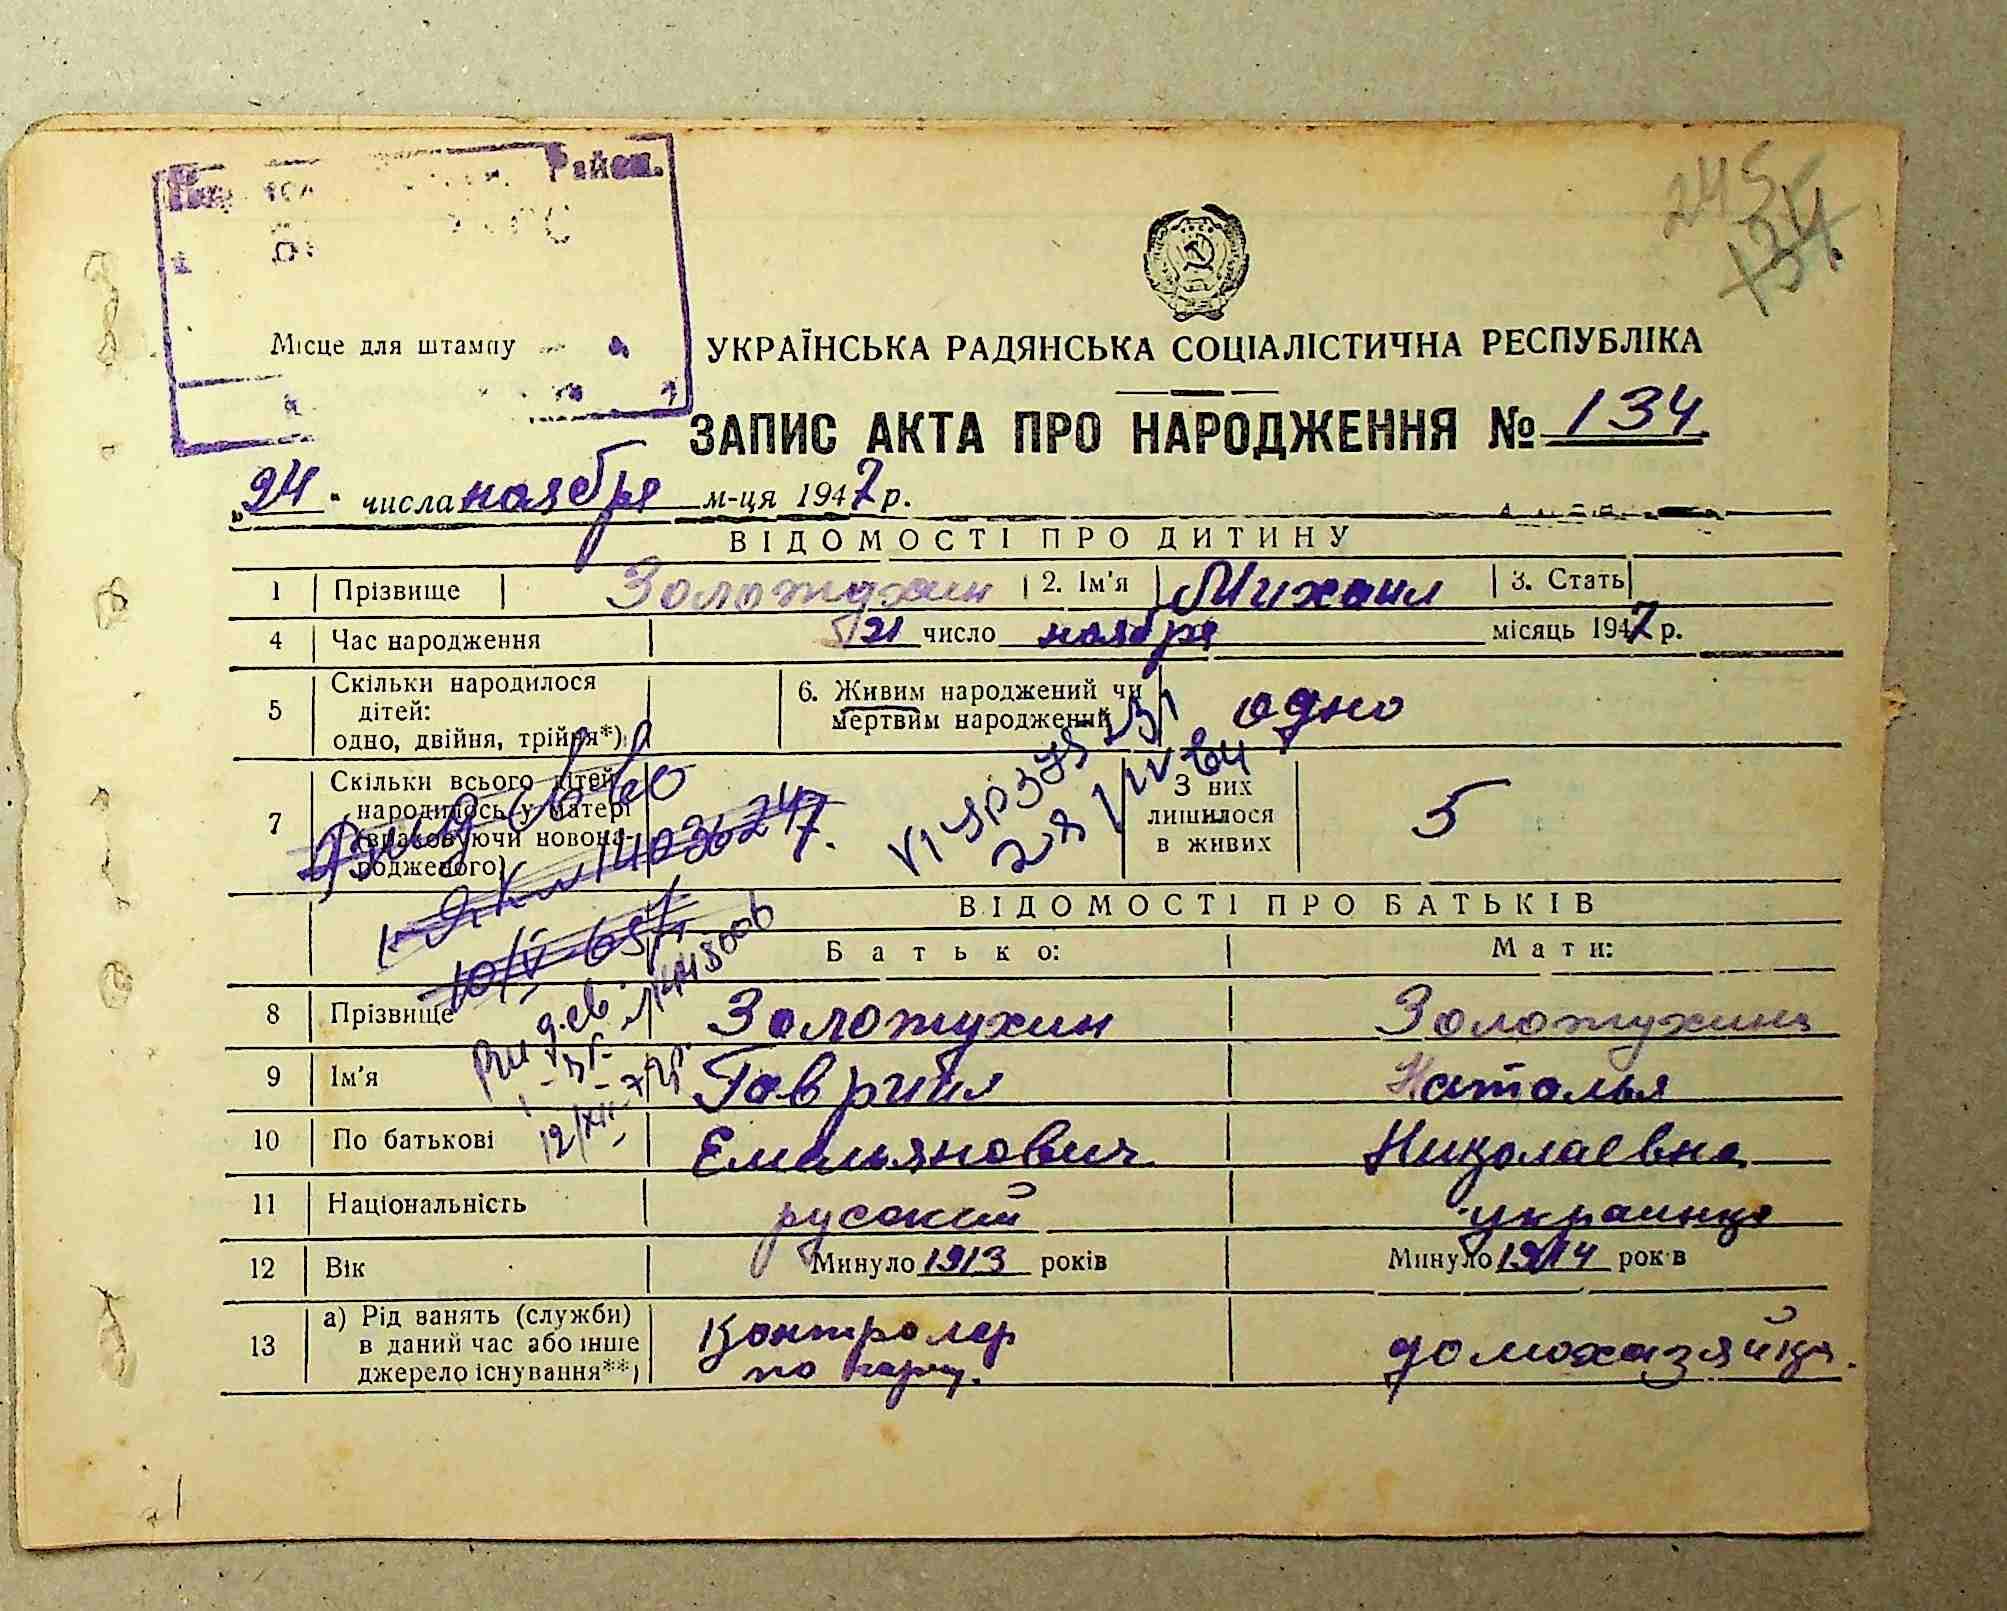 Район.
245
134
Місце для штампу
УКРАЇНСЬКА РАДЯНСЬКА СОЦІАЛІСТИЧНА РЕСПУБЛІКА
ЗАПИС АКТА ПРО НАРОДЖЕННЯ № 134
„24" числа ноября м-ця 1947 р.
ВІДОМОСТІ ПРО ДИТИНУ
1 Прізвище Золотухин 2. Ім'я Михаил 3. Стать
4 Час народження 21 число ноября місяць 1947 р.
5 Скільки народилося дітей: одно, двійня, трійня*)
6. Живим народжений чи мертвим народжений одно
7 Скільки всього дітей народилось у матері (враховуючи новонародженого)
З них лишилося в живих 5
10/V-65г
12/XII-
ВІДОМОСТІ ПРО БАТЬКІВ
Батько: Мати:
8 Прізвище Золотухин Золотухина
9 Ім'я Гавриил Наталья
10 По батькові Емельянович Николаевна
11 Національність русский украинка
12 Вік Минуло 1913 років Минуло 1914 років
13 а) Рід занять (служби) в даний час або інше джерело існування**) Контролер по домохазяйка.